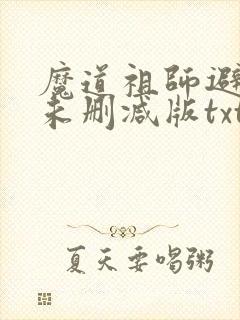 魔道祖师避
未删减版txt
夏天要喝粥